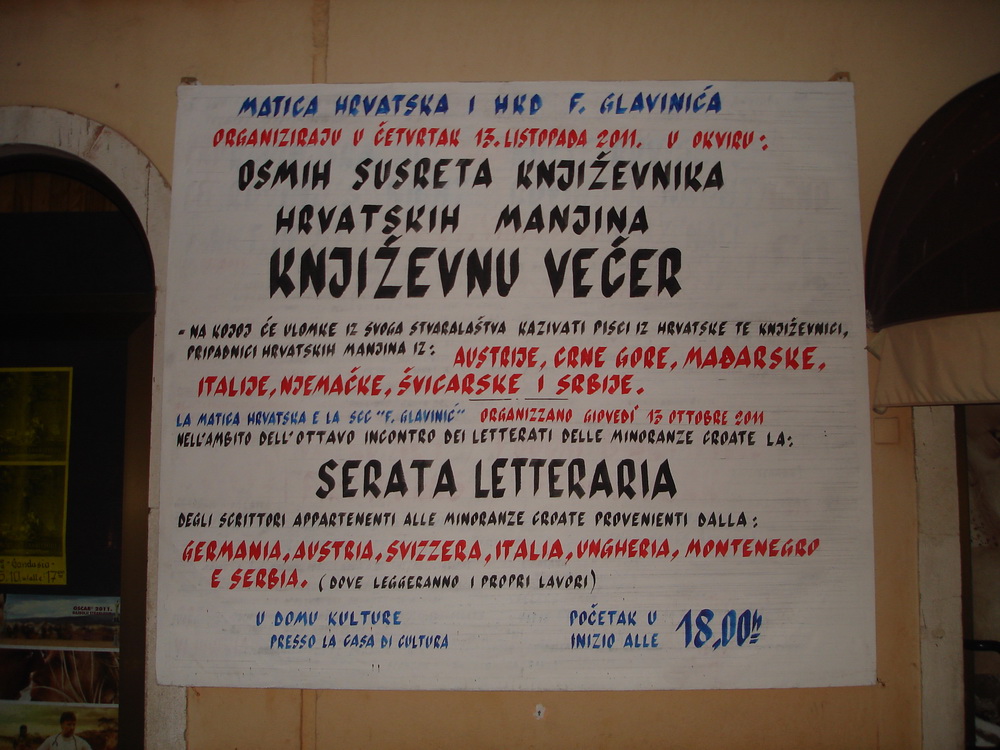 MATICA HRVATSKA I HKD F. GLAVINIĆA
ORGANIZIRAJU U ČETVRTAK 13. LISTOPADA 2011. U OKVIRU:
OSMIH SUSRETA KNJIŽEVNIKA
HRVATSKIH MANJINA
KNJIŽEVNU VEČER
- NA KOJOJ ĆE ULOMKE IZ SVOGA STVARALAŠTVA KAZIVATI PISCI IZ HRVATSKE TE KNJIŽEVNICI,
PRIPADNICI HRVATSKIH MANJINA IZ: AUSTRIJE, CRNE GORE, MAĐARSKE,
ITALIJE, NJEMAČKE, ŠVICARSKE I SRBIJE.
LA MATICA HRVATSKA E LA SCC "F. GLAVINIĆ" ORGANIZZANO GIOVEDI' 13 OTTOBRE 2011
NELL'AMBITO DELL'OTTAVO INCONTRO DEI LETTERATI DELLE MINORANZE CROATE LA:
SERATA LETTERARIA
DEGLI SCRITTORI APPARTENENTI ALLE MINORANZE CROATE PROVENIENTI DALLA:
GERMANIA, AUSTRIA, SVIZZERA, ITALIA, UNGHERIA, MONTENEGRO
E SERBIA. (DOVE LEGGERANNO I PROPRI LAVORI)
U DOMU KULTURE POČETAK U
PRESSO LA CASA DI CULTURA INIZIO ALLE 18,00h